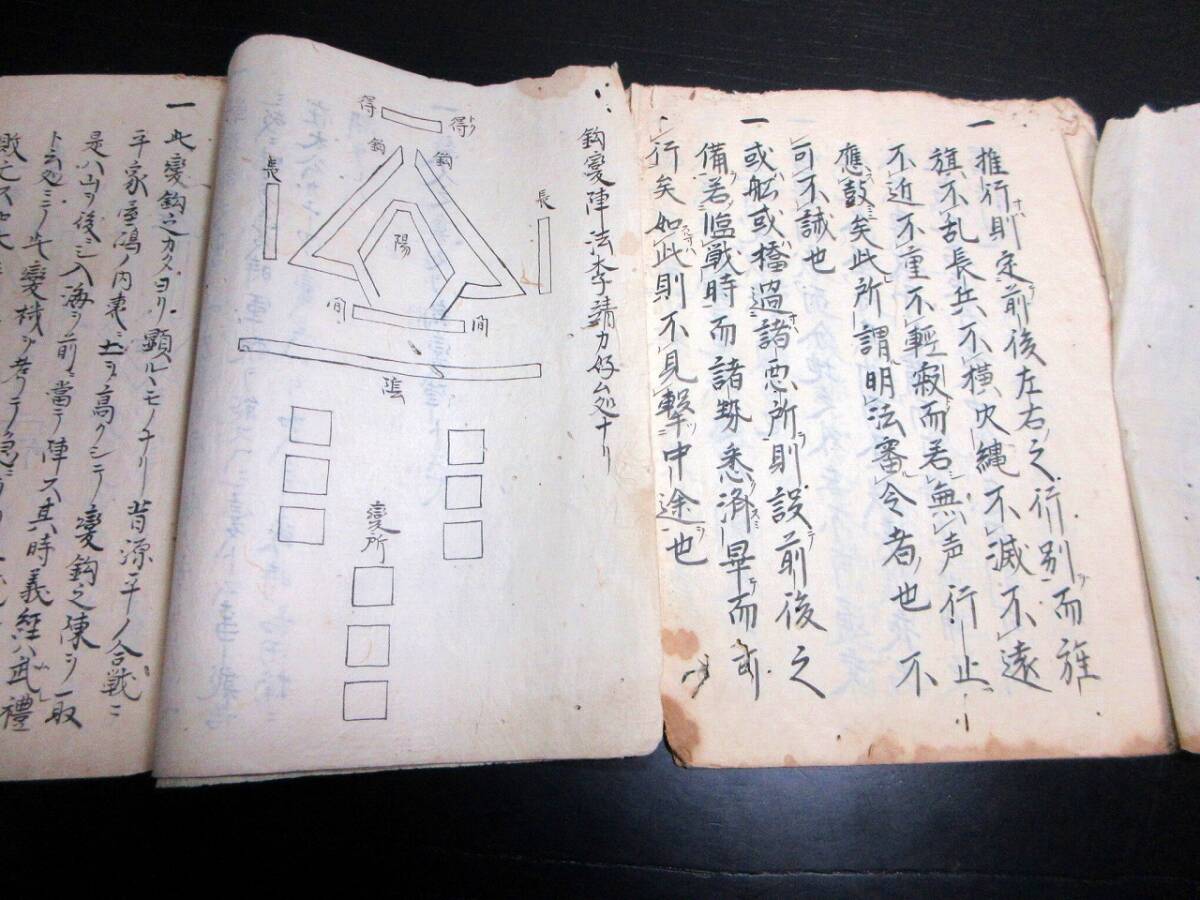 一 推行則定前後左右之行別而旌
旗不乱長兵不横火縄不滅不遠
不近不重不輕寂而若無声行止
應鼓矣此所謂明法審令者也不
可不誠也
一 或舩或橋過諸悪所則設前後之
備若臨戦時而諸勢悉済畢而可
行矣如此則不見撃中途也
鈎變陣法李靖カ好ム処ナリ
得 得
鈎 鈎
長 長
陽
間 間
陰
變所
一 此變鈎之カタヨリ顕ルヽモノナリ昔源平ノ合戦ニ
平家屋嶋ノ内裏ニ土ヲ高クシテ變鈎之陳ヲ取
是ハ山ヲ後ニシ入海ヲ前ニ當テ陣ス其時義經ハ武禮
ト云処ニシテ變機ヲ考テ急